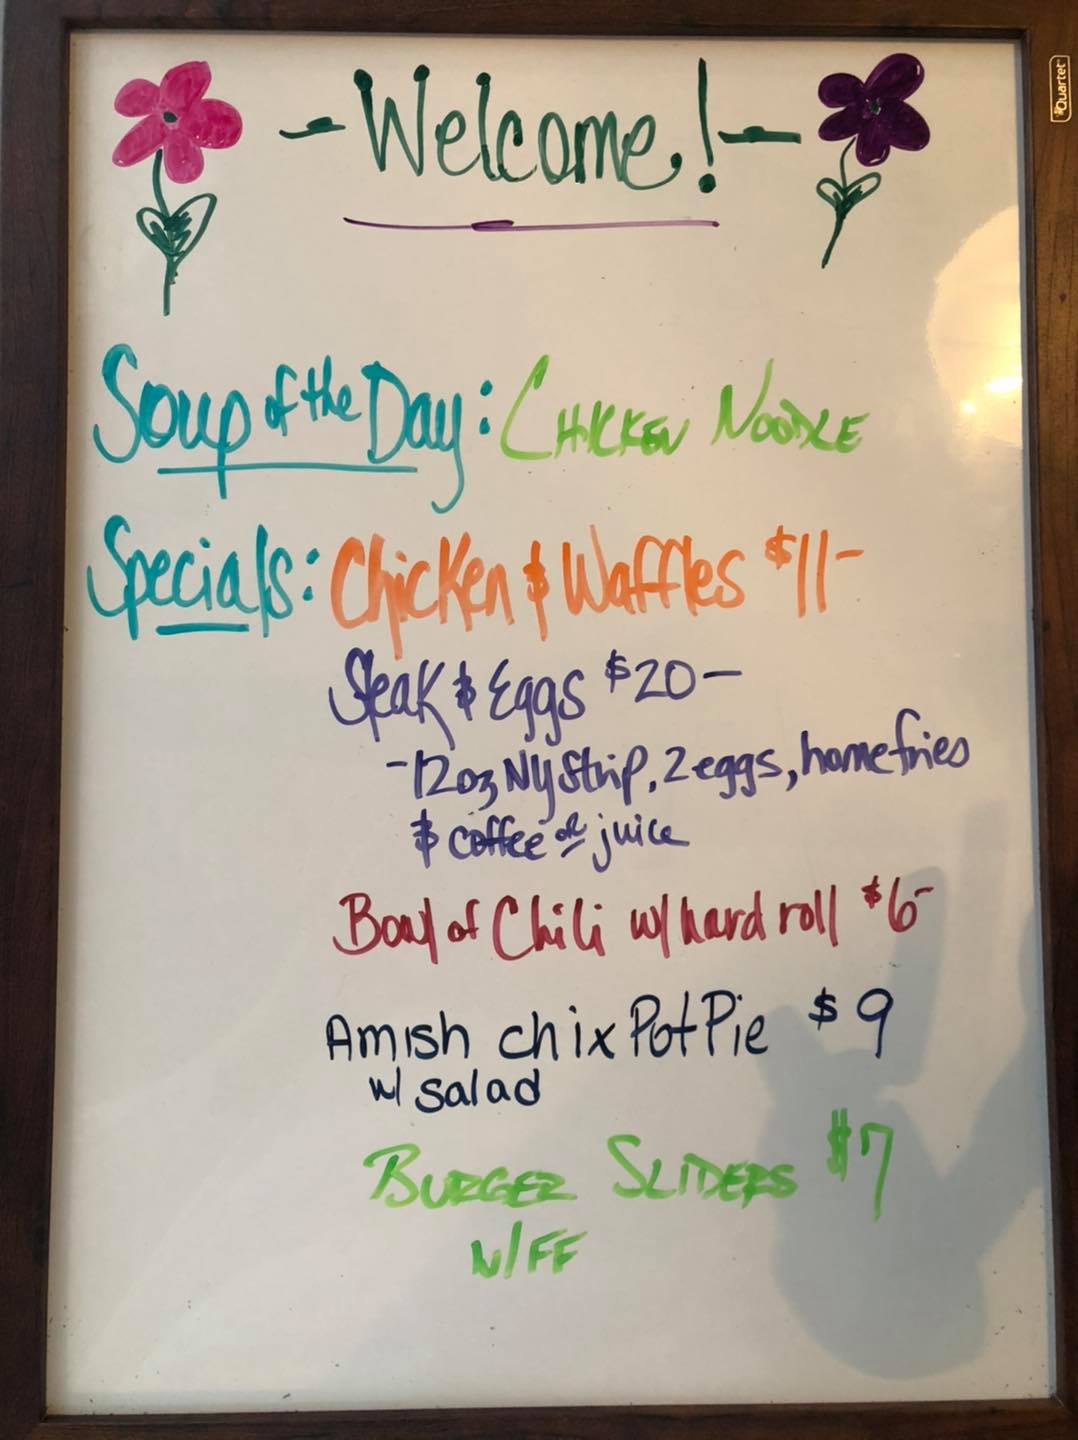 -Welcome!-
Soup of the Day: Chicken Noodle
Specials: Chicken & Waffles $11-
Steak & Eggs $20-
-12oz NY Strip, 2 eggs, home fries
& coffee or juice
Bowl of Chili w/ hard roll $6-
Amish chix Pot Pie $9
w/ salad
Burger Sliders $7
w/FF
Quartet